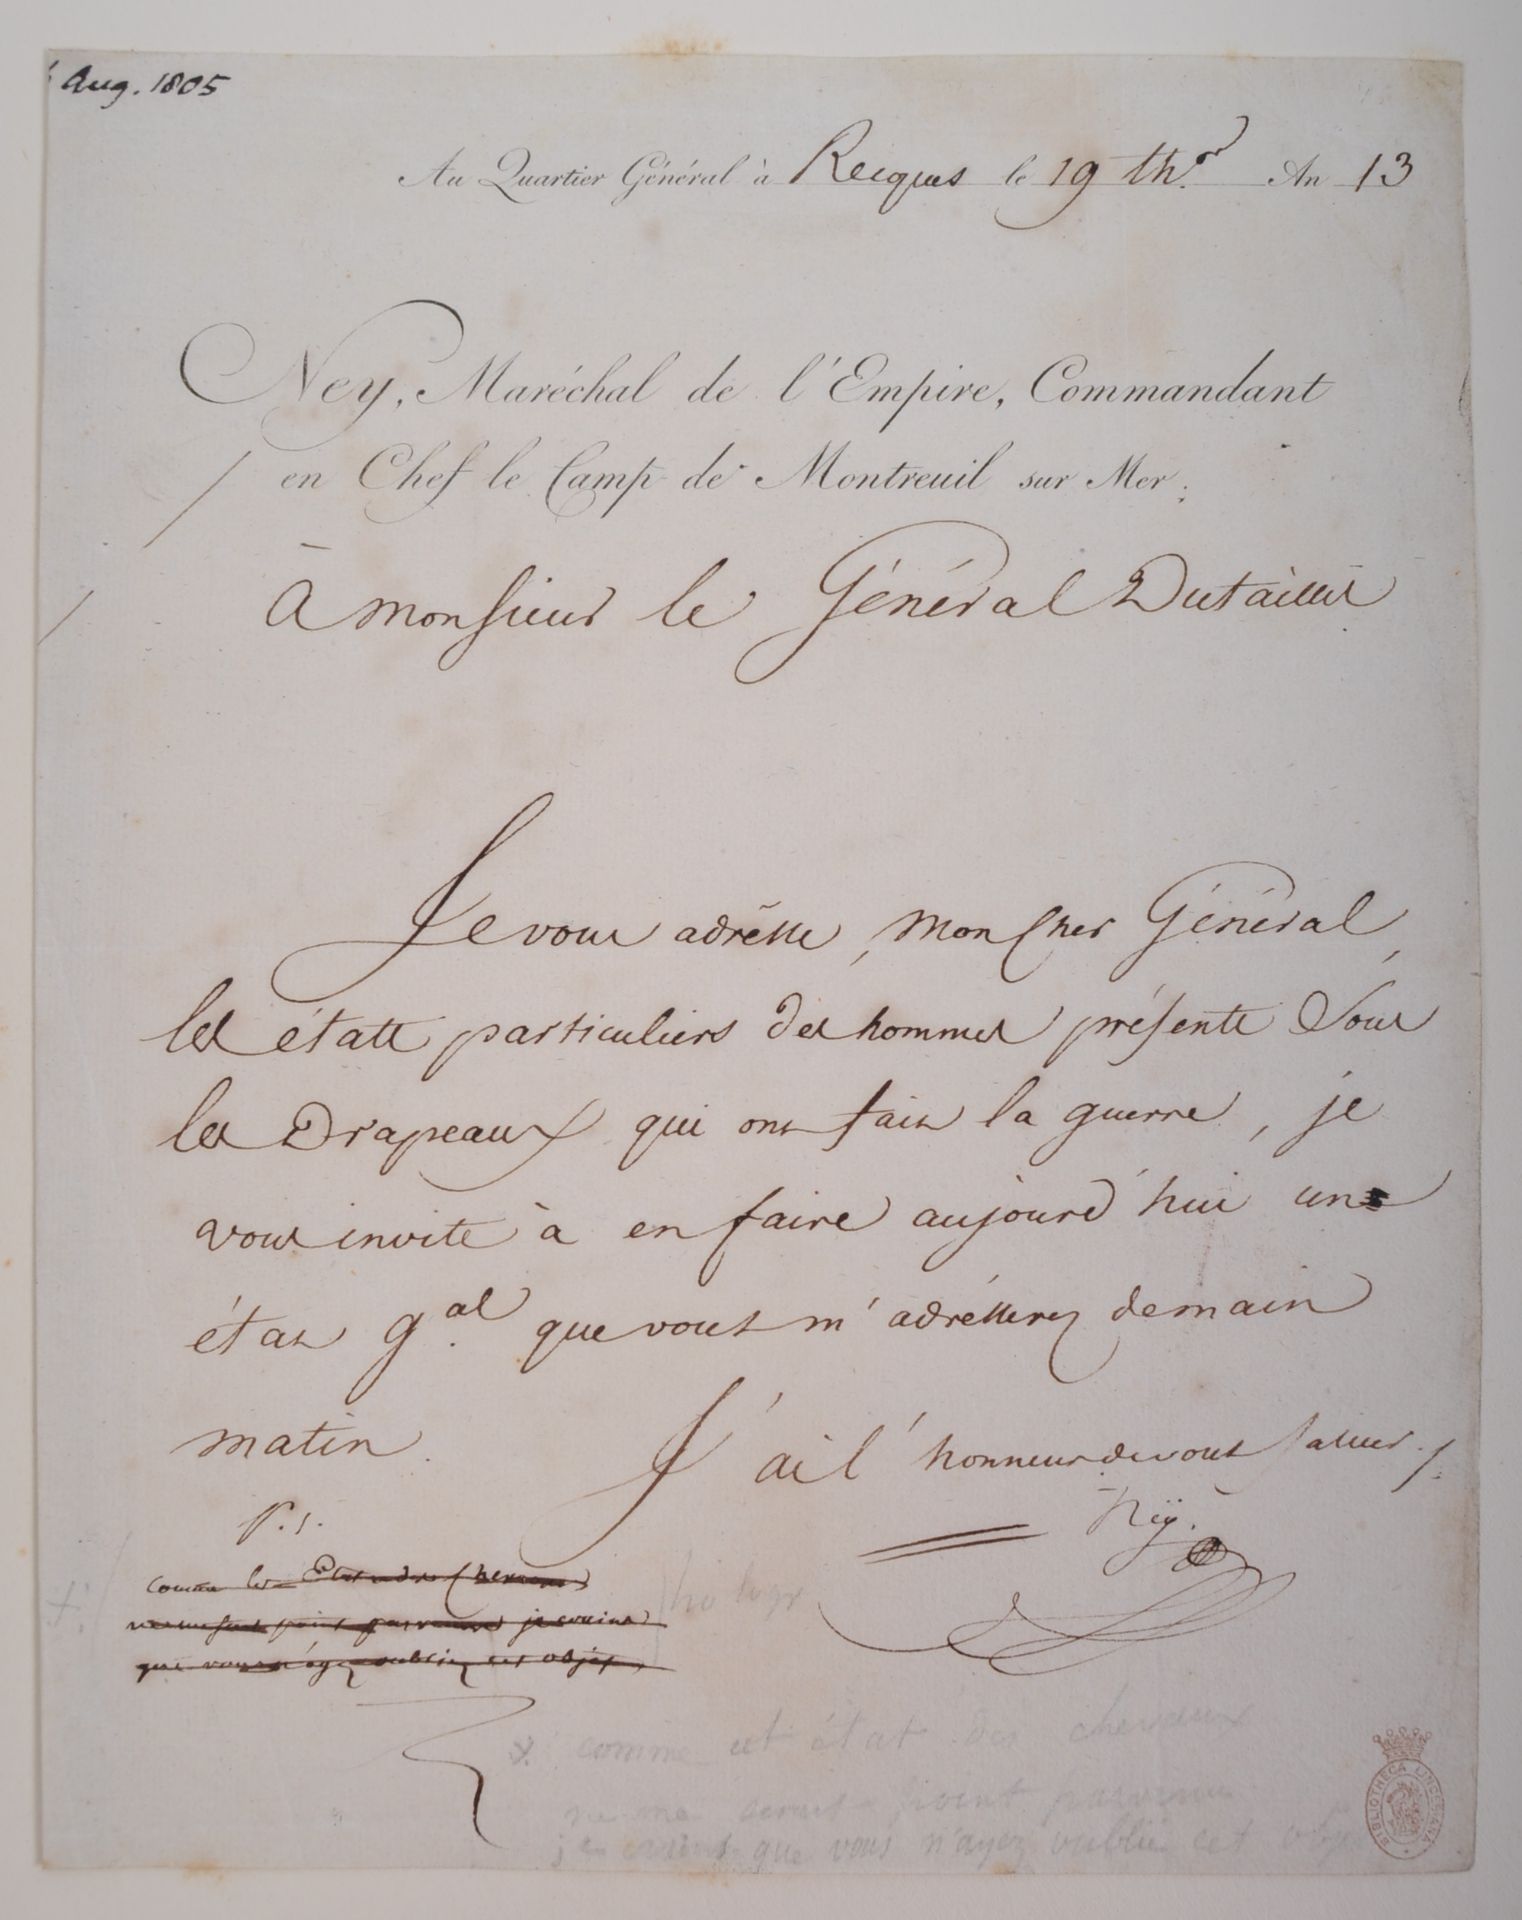 Aug. 1805
Au Quartier Général à Recques le 19 th.or An 13
Ney, Maréchal de l'Empire, Commandant
en Chef le Camp de Montreuil sur Mer.
A Monsieur le Général Dutaillis
Je vous adresse, mon Cher Général,
les états particuliers des hommes présents Sous
les Drapeaux qui ont fait la guerre, je
vous invite à en faire aujourd'hui un
état g.al que vous m'adrésserez demain
matin.
J'ai l'honneur de vous saluer./.
Ney.
P.S.
comme les Etats des Chevaux
ne me sont point parvenus je crains
que vous n'ayez oublié cet objet.
holograph
x. comme cet état des chevaux
ne me serait point parvenu
je crains que vous n'ayez oublié cet objet
BIBLIOTHECA LINDESIANA